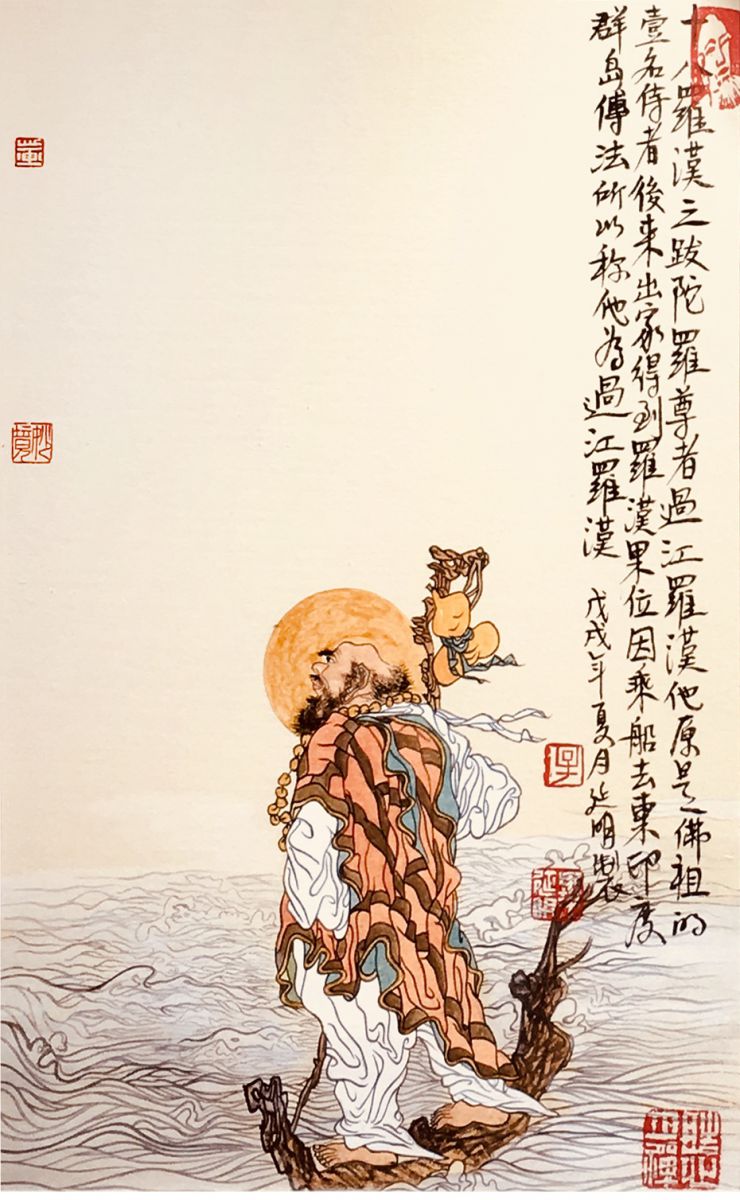 十八羅漢之跋陀羅尊者過江羅漢他原是佛祖的
壹名侍者後来出家得到羅漢果位因乘船去東印度
群島傳法所以称他為過江羅漢 戊戌年夏月延明製